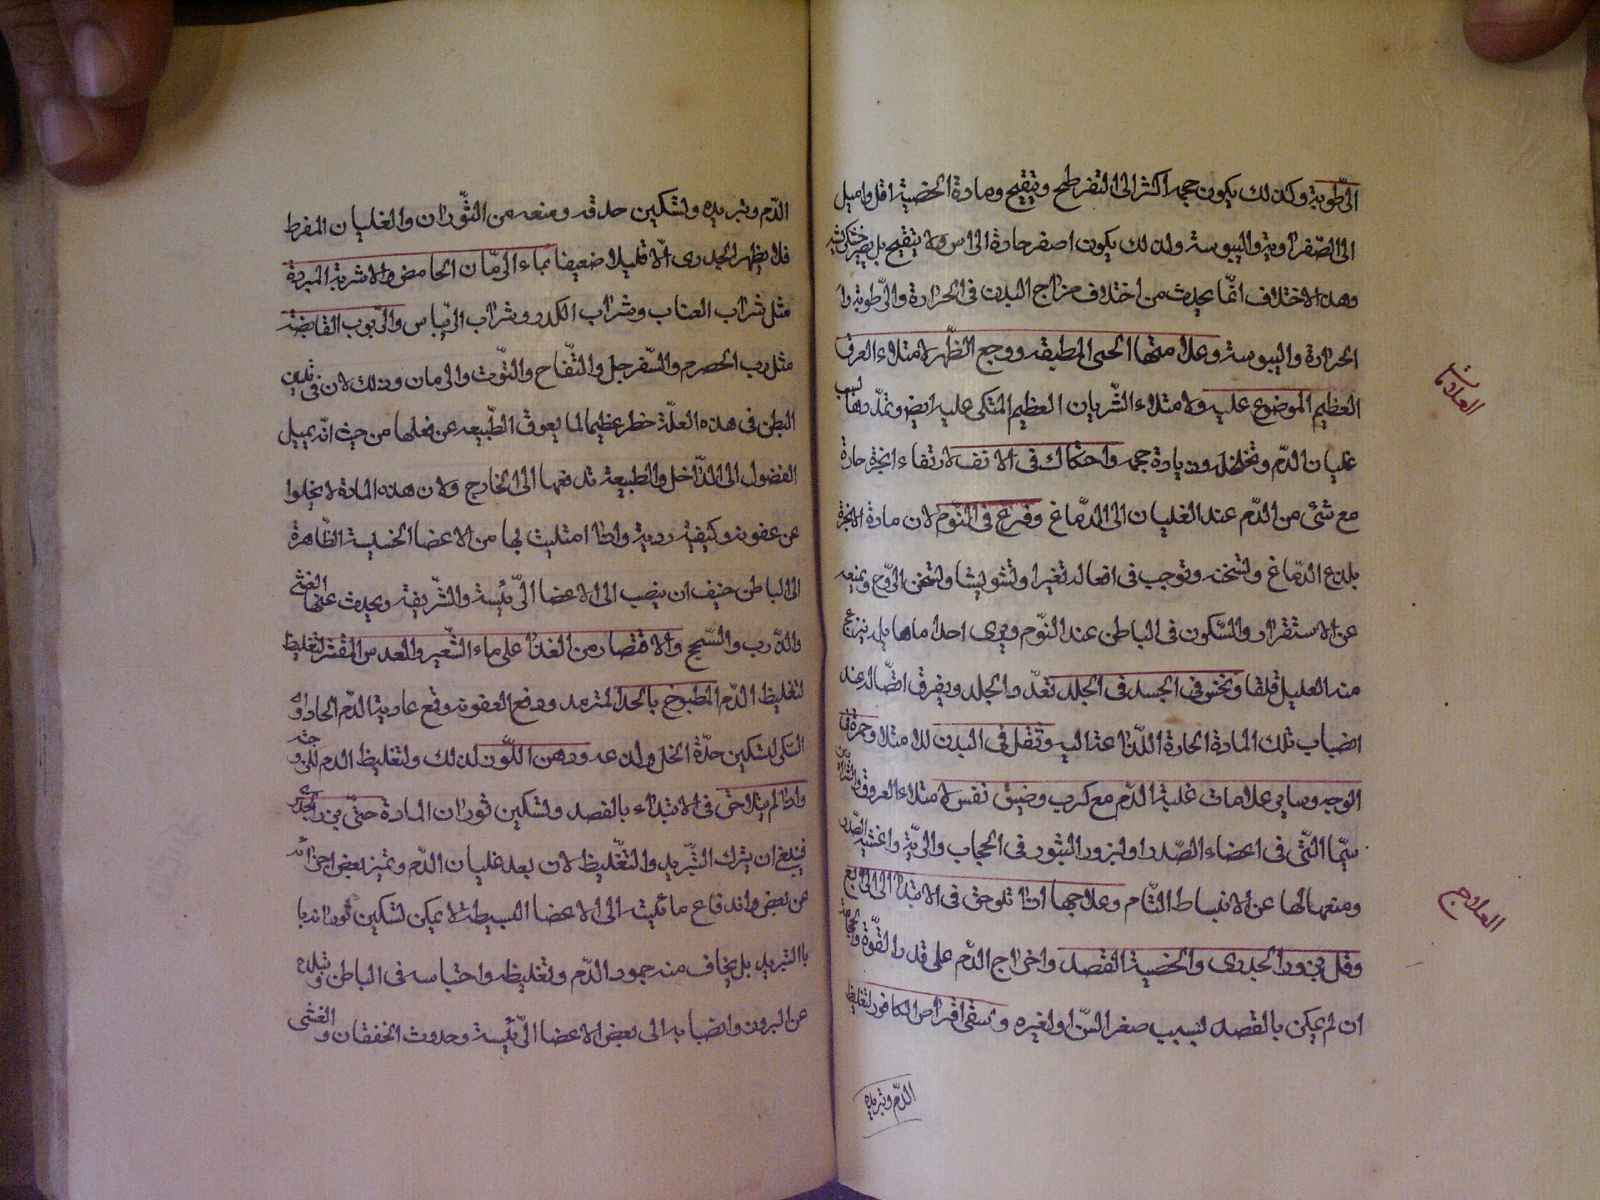 الرّطوبة وكذلك يكون حجمه اكثر الى التفرطح وتقيح ومادة الحصبة اقل واميل
الى الصّفراوية واليبوسة ولذلك يكون اصفر حادة الراس ولا يتقيح بل يصير خشكريشه
وهذه الاختلاف انّما يحدث من اختلاف مزاج البدن فى الحرارة والرّطوبة وا
الحرارة واليبوسة وعلامتها الحمى المطبقه ووجع الظّهر لامتلاء العرق
العلامات
العظيم الموضوع عليه ولامتلاء الشّريان العظيم المتكى عليه ايض وتمدّدها بسبب
غليان الدّم وتخلخله وزيادة حجمه واحتكاك فى الانف لارتفاء ابخرة حادة
مع شئ من الدّم عند الغليان الى الدّماغ وفزع فى النّوم لان مادة الابخرة
يلذع الدّماغ وتسخنه وتوجب فى افعاله تغيرا وتشويشا وتسخن الرّوح ويمنعه
عن الاستقرار والسّكون فى الباطن عند النّوم ويرى احلاما هايلة ينزعج
منه العليل قلقا ونخس فى الجسد فى الجلد تمدّد الجلد ويفرق اتّصاله عند
انصباب تلك المادة الحادة اللّذاعة اليه وثقل فى البدن للامتلا وحمرة فى
الوجه وسايى علامات غلبة الدّم مع كرب وضيق نفس لامتلاء العروق والشرائين
سيّما التّى فى اعضاء الصّدر او لبزور البثور فى الحجاب والريّة واغشية الصّدر
ومنعها لها عن الانبساط التّام وعلاجها اذا تلوحق فى الابتدا الى الرابع
العلاج
وقبل بروز الجدرى والحصبة الفصد واخراج الدّم على قدر القوّة والحجامة
ان لم يمكن بالفصد لسبب صغر السّن او لغيره وسقى اقراص الكافور لتغليظ
الدّم وتبريده
الدّم وتبريده وتسكين حدته ومنعه من الثّوران والغليان المفرط
فلا يظهر الجدرى الّا قليلا ضعيفا بماء الرمّان الحامض والاشربة المبردة
مثل شراب العناب وشراب الكدر وشراب الريباس والرّبوب القابضة
مثل رب الحصرم والسّفرجل والتّفاح والتّوت والرمان وذلك لان فى تليين
البطن فى هذه العلّة خطر عظيم لما يعوق الطّبيعه عن فعلها من حيث انّه يميل
الفضول الى الدّاخل والطبيعة تدفعها الى الخارج ولان هذه المادة لا يخلوا
عن عفونة وكيفية ردية واذا امتليت بها من الاعضا الخسيسة الظّاهرة
الى الباطن خيف ان ينصب الى الاعضا الرّئيسة والشّريفة ويحدث عنها الغشى
والذّرب والسّحج والاقتصار من الغذا على ماء الشّعير والعدس المقشر لتغليظ
لتغليظ الدّم المطبوخ بالخل لمنع العفونة ودفع عادية الدّم الحاد
السّكر لتسكين حدّة الخل ولذعه ودهن اللّوز لذلك ولتغليظ الدم
واذا لم يتلاحق فى الابتداء بالفصد وتسكين ثوران المادة حتّى برز الجدرى
فينبغ ان يترك التّبريد والتغّليظ لان بعد غليان الدّم وتميز بعض اجزائه
عن بعض واندفاع الى الاعضا البسيطة لا يمكن تسكين ثورانها
باالتبريد بل يخاف منه جمود الدّم وتغليظه واحتباسه فى الباطن
عن البروز وانصبابه الى بعض الاعضا الرّئيسة وحدوث الخفقان والغشى